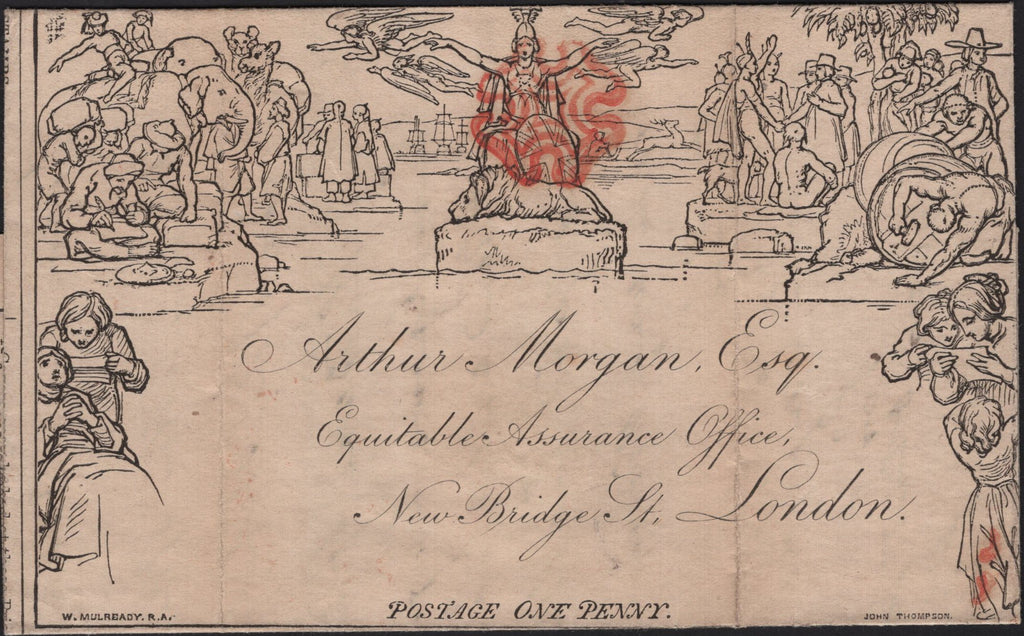 Arthur Morgan, Esq.
Equitable Assurance Office,
New Bridge St, London.
W. MULREADY. R.A.
POSTAGE ONE PENNY.
JOHN THOMPSON.